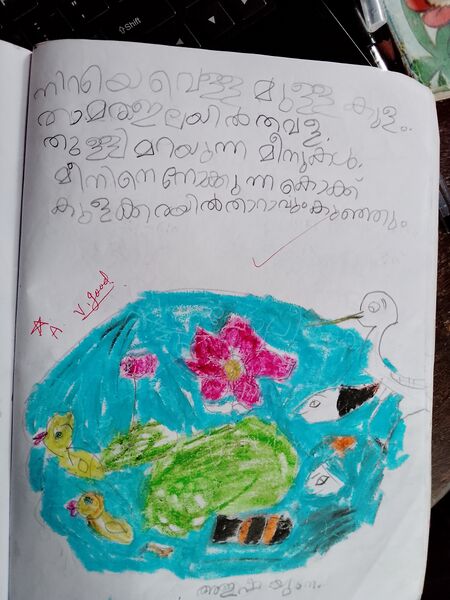 നിറയെ വെള്ള മുള്ള കുളം.
താമരഇലയിൽ തവള.
തുള്ളി മറയുന്ന മീനുകൾ.
മീനിനെ നോക്കുന്ന കൊക്ക്
കുളക്കരയിൽ താറാവും കുഞ്ഞും
V. good
A
Shift